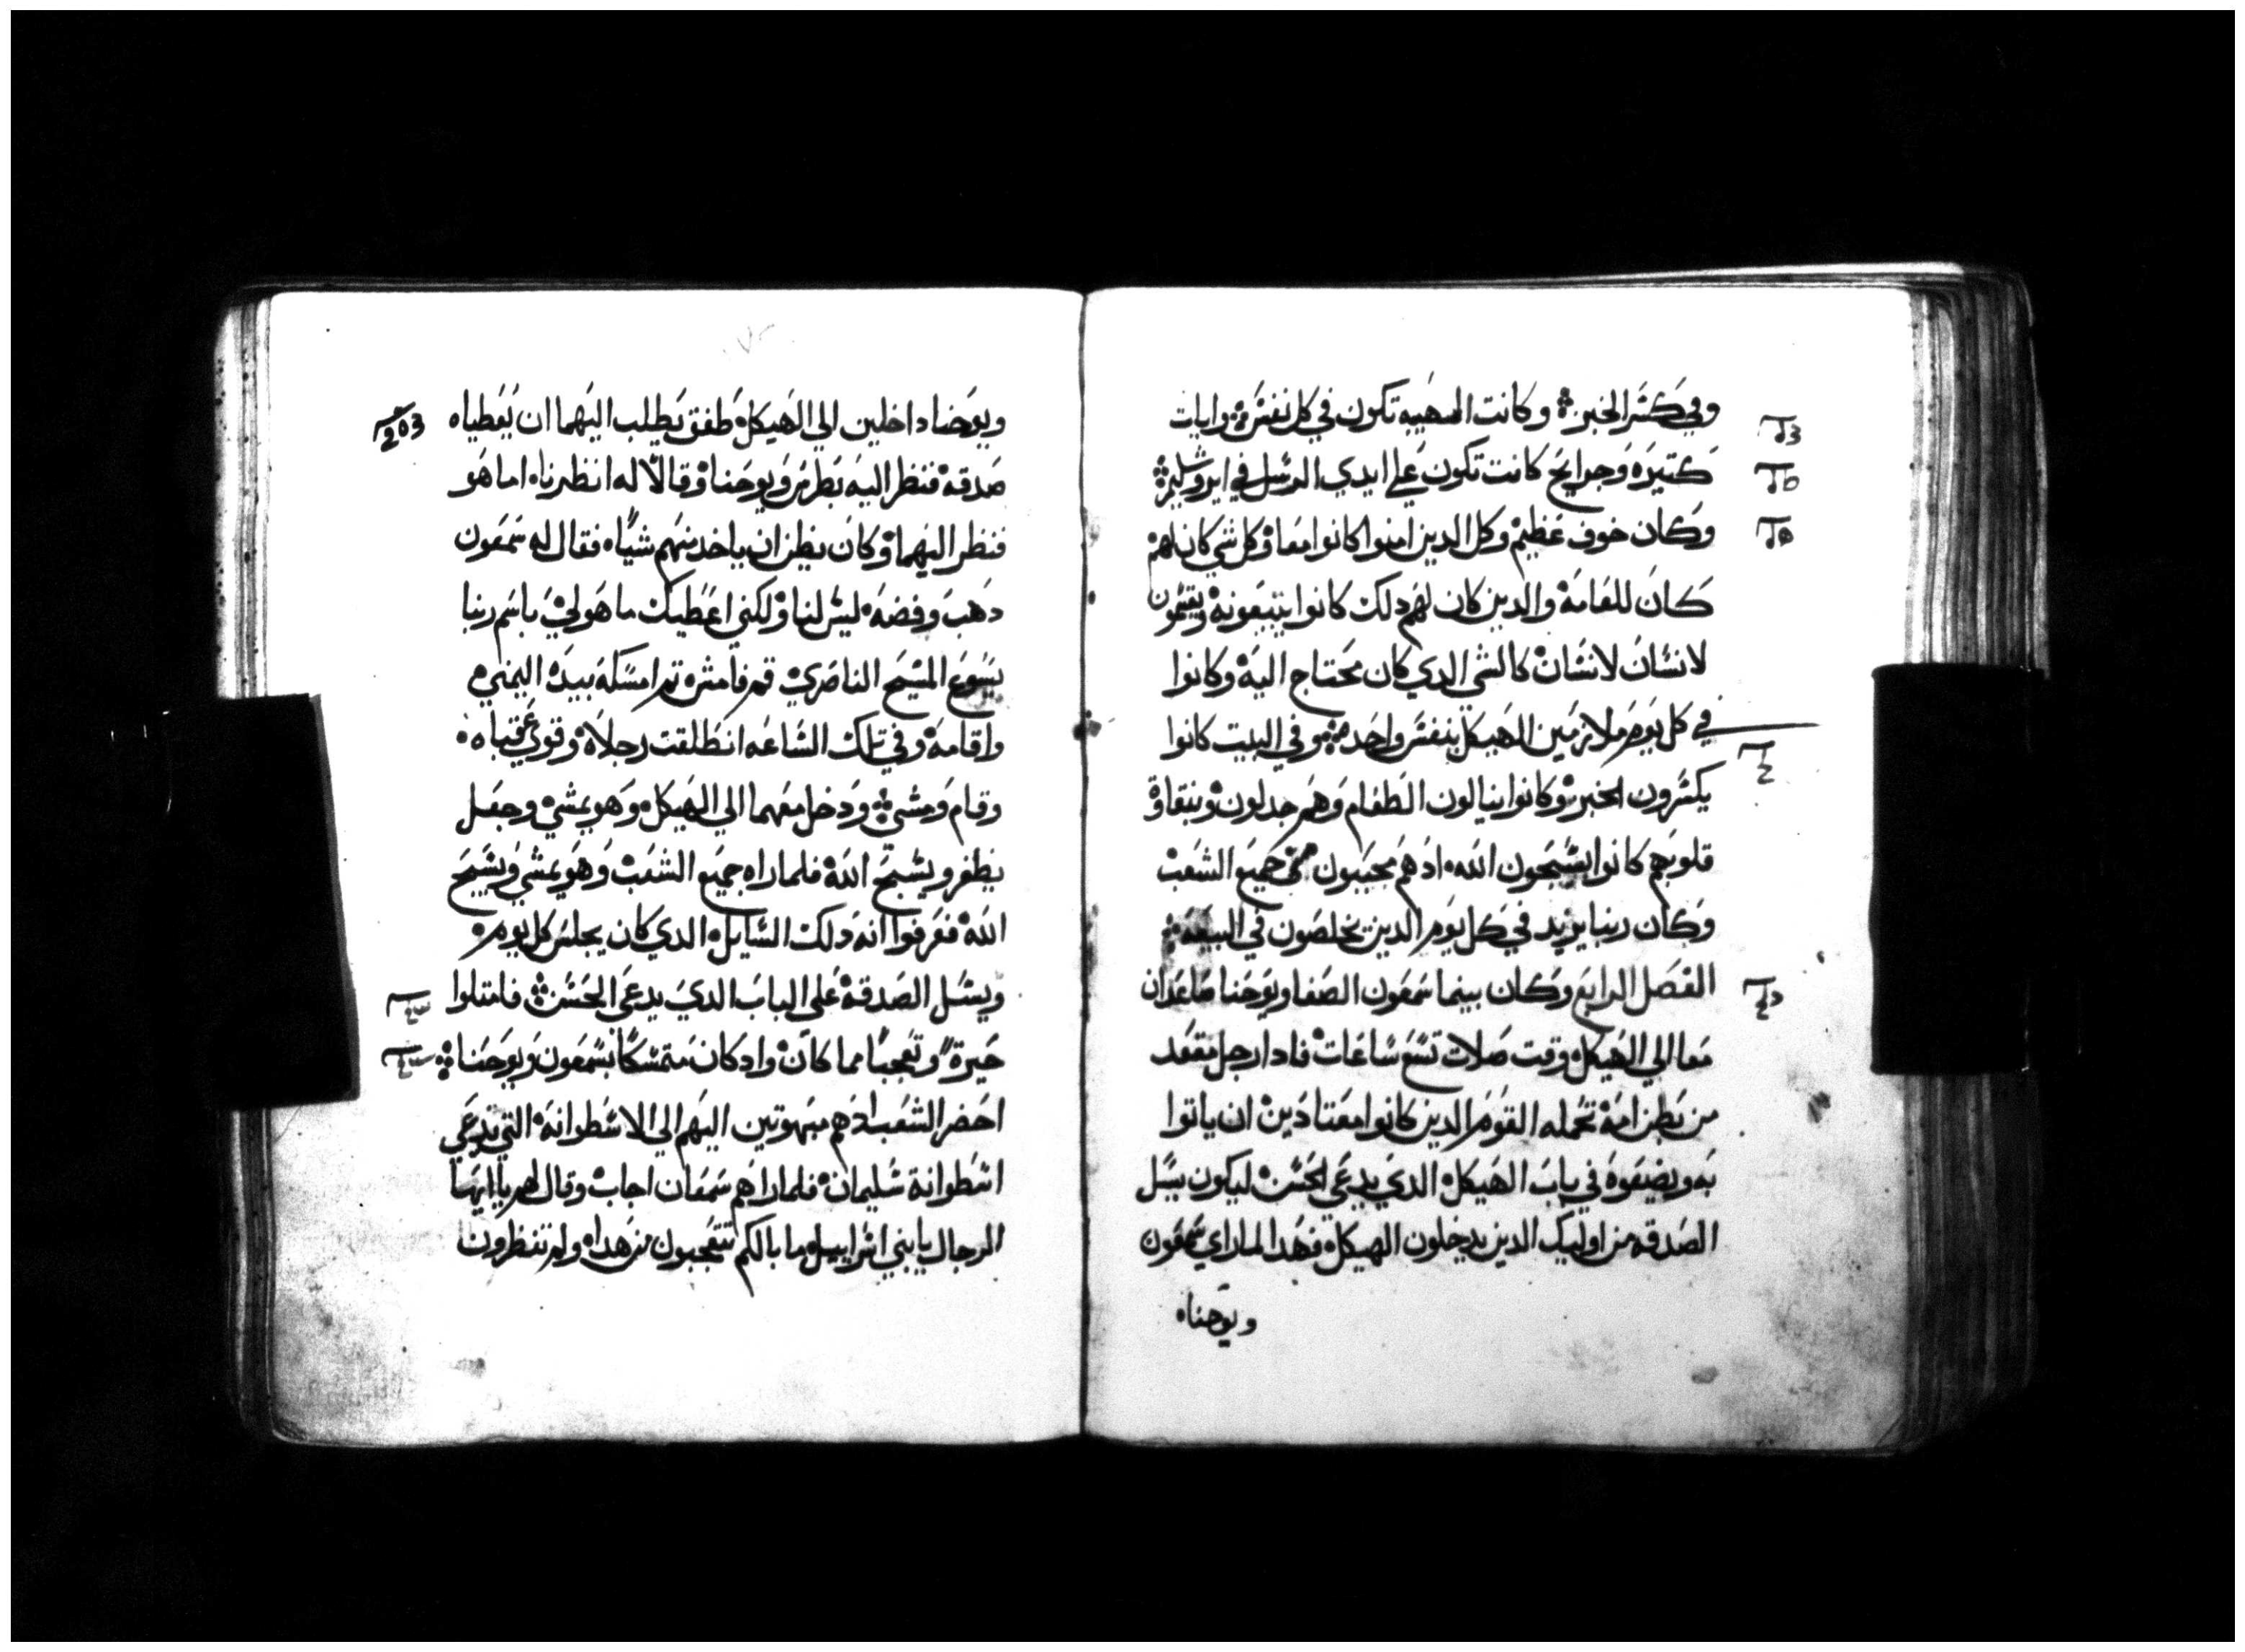 وفي كسر الخبز وكانت الهيبه تكون في كل نفس وايات
كتيره وجرايح كانت تكون علي ايدي الرسل في ايروشليم
وكان خوف عظيم وكل الدين امنوا كانوا معا وكل شي كان لهم
كان للعامة والدين كان لهم دلك كانوا يتبعونه ويقسمون
لانسان لانسان كالشي الدي كان محتاج اليه وكانوا
في كل يوم ملازمين الهيكل بنفس واحده وفي البيت كانوا
يكسرون الخبز وكانوا ينالون الطعام وهم جدلون وبنقاوة
قلوبهم كانوا يسبحون الله اد هم محببون جميع الشعب
وكان ربنا يزيد في كل يوم الدين يخلصون في البيعة
الفصل الرابع وكان بينما سمعون الصفا ويوحنا صاعدان
معا الي الهيكل وقت صلات تسع ساعات فادا رجل مقعد
من بطن امه تحمله القوم الدين كانوا معتادين ان ياتوا
به ويضيفوه في باب الهيكل الدي يدعي الحسن ليكون يسل
الصدقه من اوليك الدين يدخلون الهيكل فهدا لما راي سمعون
ويوحنا
203
ويوحنا داخلين الي الهيكل طفق يطلب اليهما ان يعطياه
صدقه فنظر اليه بطرس ويوحنا وقالا له انظرنا اما هو
فنظر اليهما وكان يظن ان ياخد منهم شيا فقال له سمعون
دهب وفضه ليس لنا ولكني اعطيك ما هو لي باسم ربنا
يسوع المسيح الناصري قم فامش تم امسكه بيده اليمني
واقامه وفي تلك الساعه انطلقت رجلاه وقوي عقباه
وقام ومشي ودخل معهما الي الهيكل وهو يمشي وجعل
يطفر ويسبح الله فلما راه جميع الشعب وهو يمشي ويسبح
الله فعرفوا انه دلك السايل الدي كان يجلس كل يوم
ويسل الصدقة علي الباب الدي يدعي الحسن فامتلوا
حيرة وتعجبا مما كان واد كان متمسكا بسمعون ويوحنا
احضر الشعب اد هم مبهوتين اليهم الي الاسطوانه التي تدعي
اسطوانة سليمان فلما راهم سمعان اجاب وقال لهم يا ايها
الرجال يا بني اسراييل ما بالكم تتعجبون من هدا ولم تنظرون